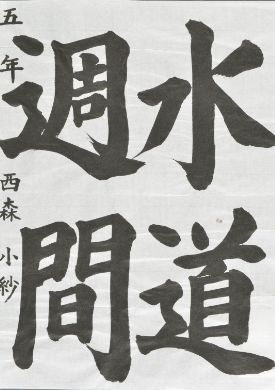 水道
週間
五年 西森 小紗